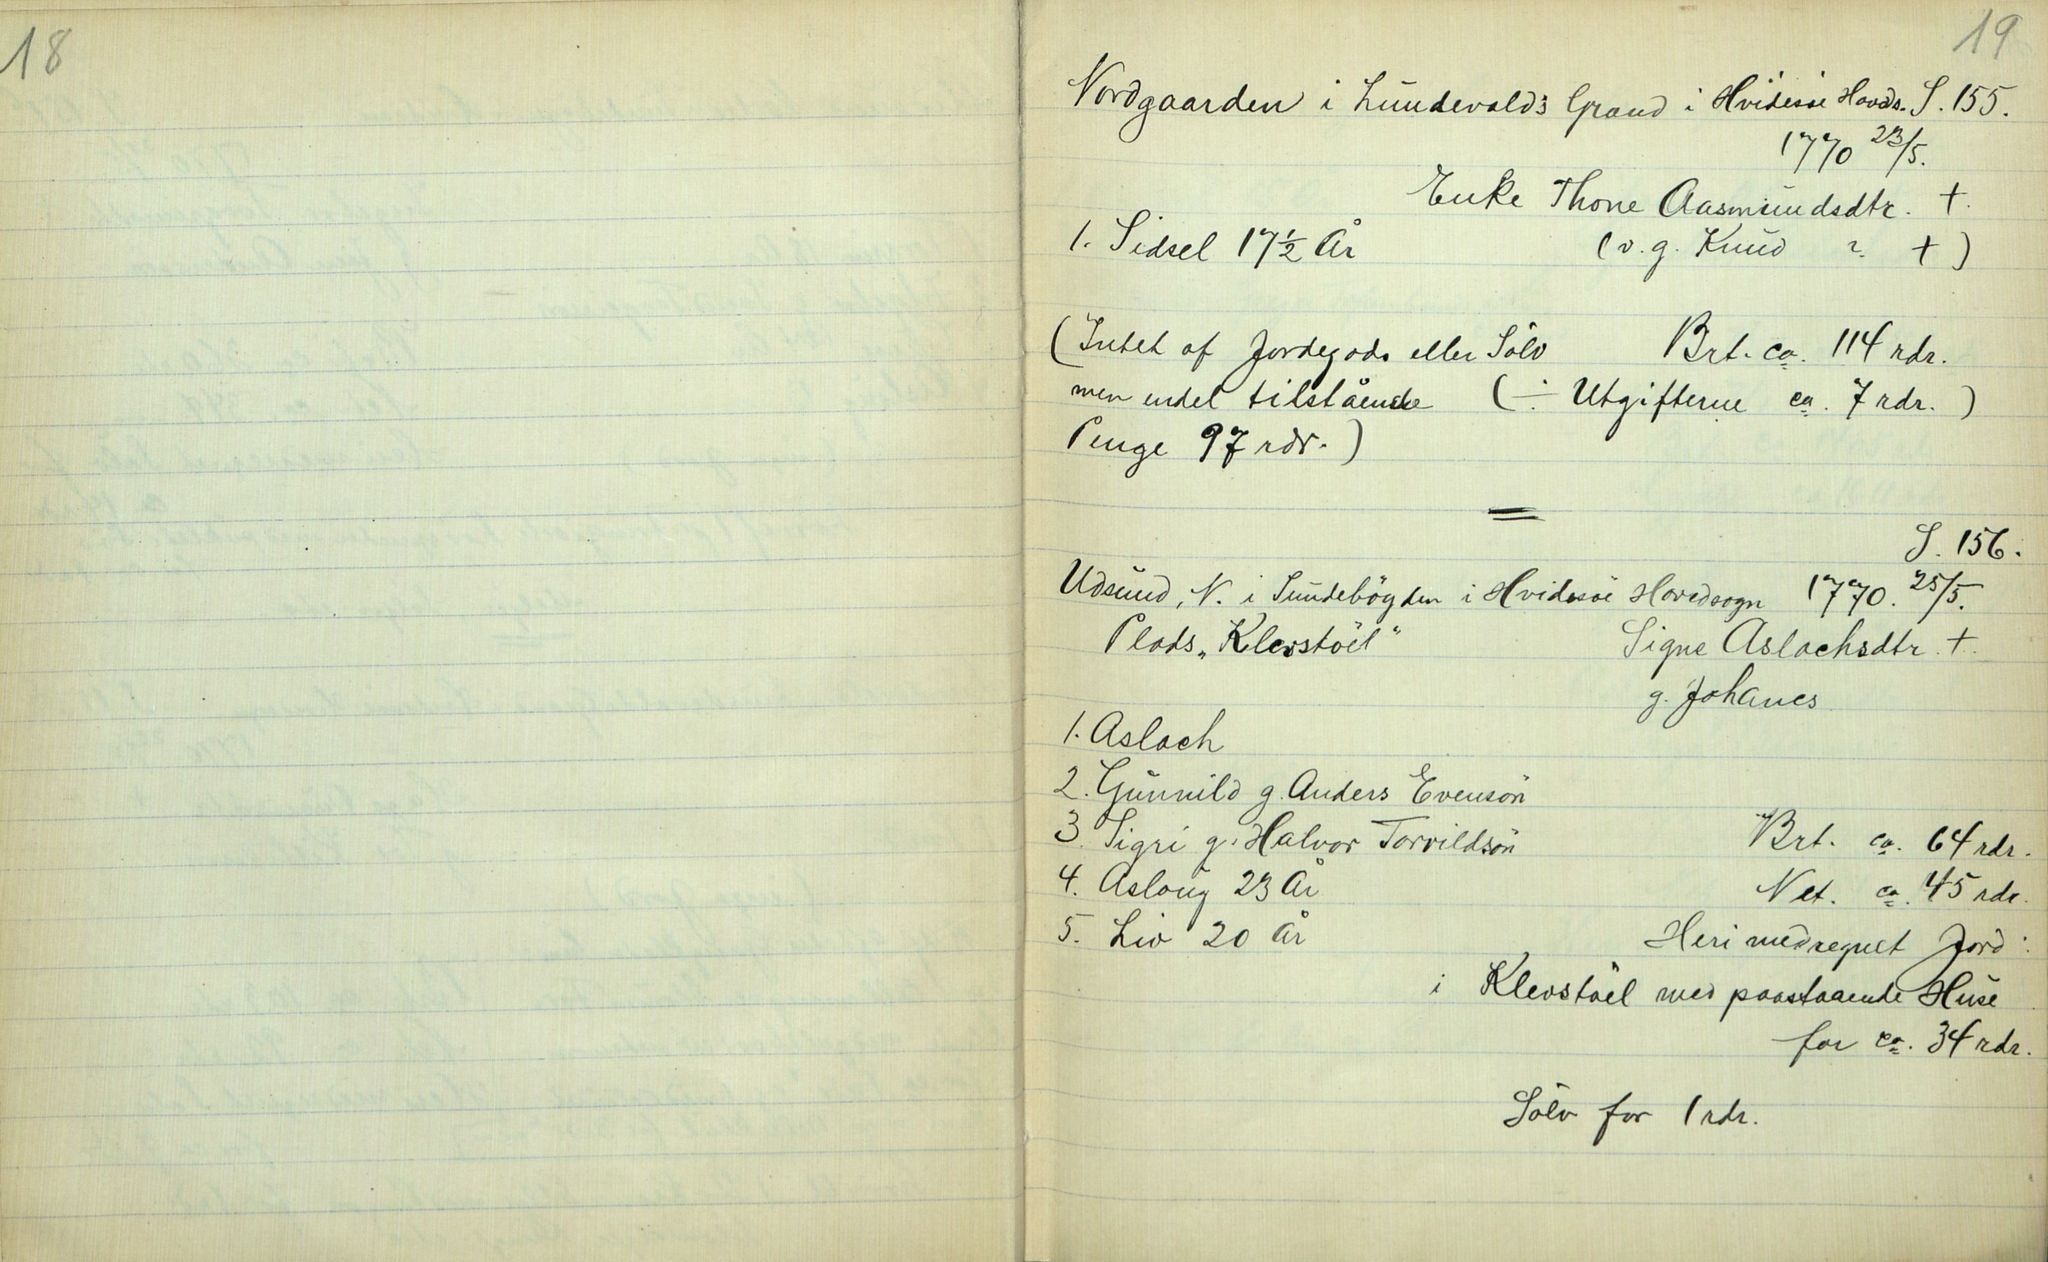 18
19
Nordgaarden i Lundevalds Grand i Hvidesøe Hovds. S. 155.
1770 23/5.
Enke Thone Aasmundsdtr. †.
1. Sidsel 17½ År (v. g. Knud ? †)
(Intet af Jordegods eller Sölv Brt. ca. 114 rdr.
men endel tilstående (÷ Utgifterne ca. 7 rdr.)
Penge 97 rdr.)
S. 156.
Udsund, N. i Sundebögden i Hvidesöe Hovedsogn 1770. 25/5.
Plads „Klevstöel" Signe Aslachsdtr. †.
g. Johanes
1. Aslach
2. Gunnild g. Anders Evensön
3. Sigri g. Halvor Torvildsön Brt. ca. 64 rdr.
4. Asloug 23 År Net. ca. 45 rdr.
5. Liv 20 År Heri medregnet Jord:
i Klevstöel med paastaaende Huse
for ca. 34 rdr.
Sölv for 1 rdr.